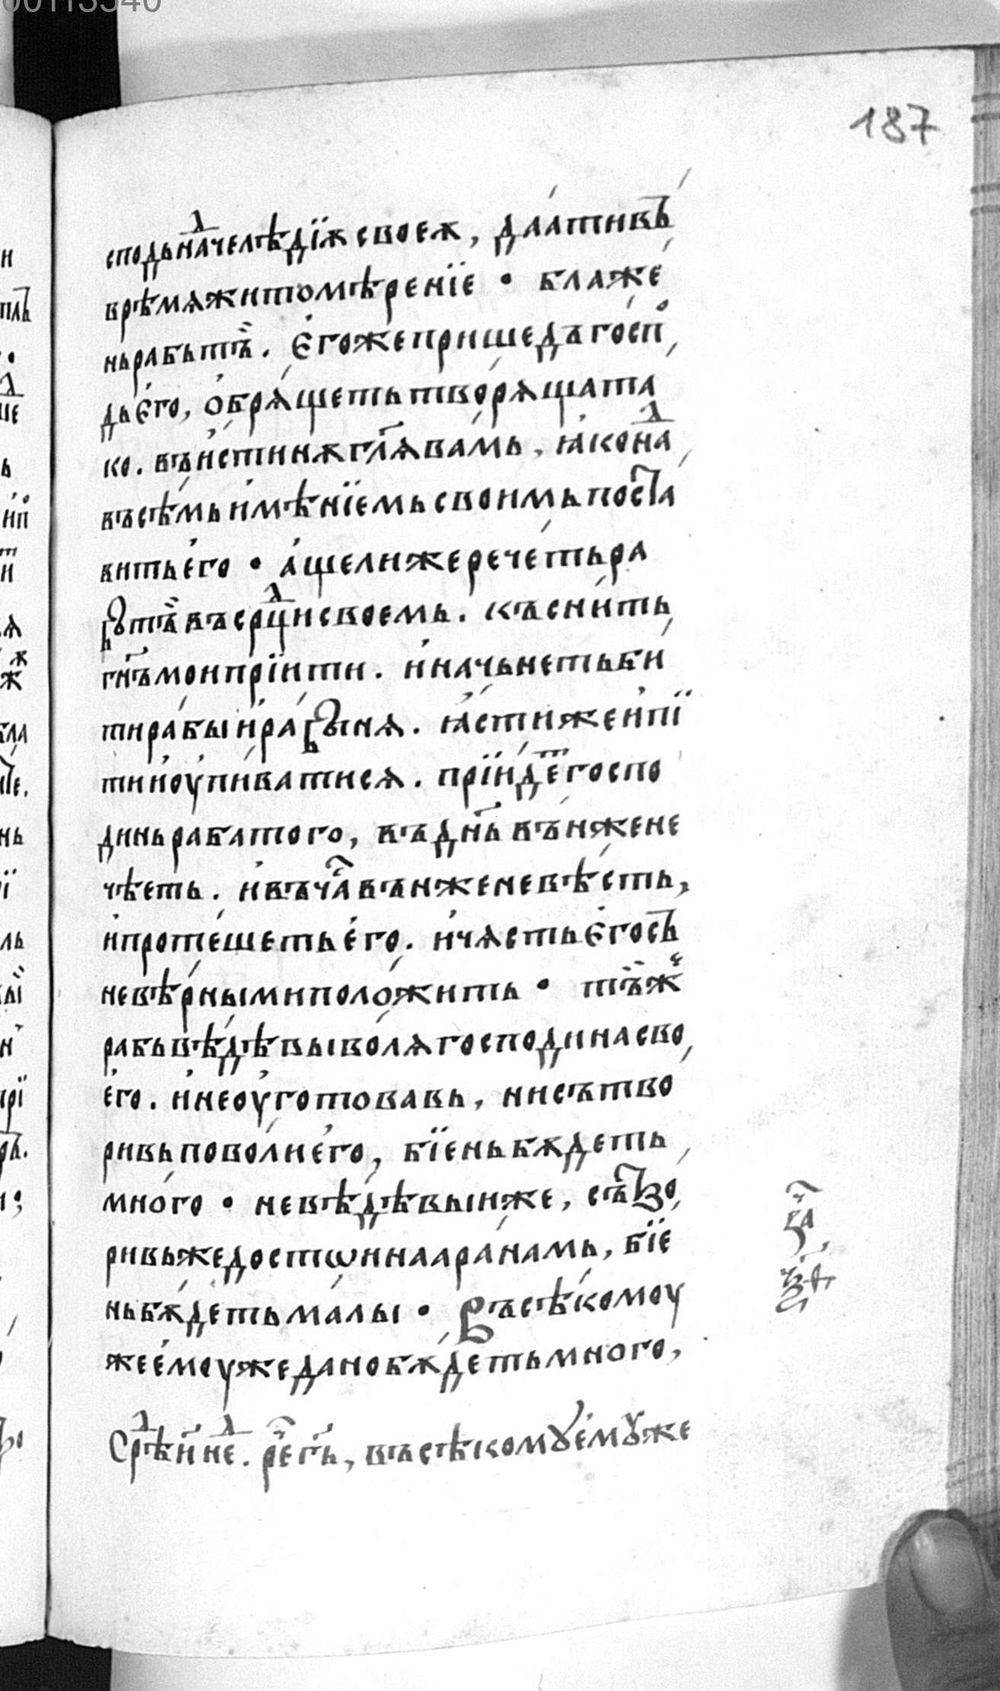 187
сподьнаⷣчелѣдїѫ своеѫ, даати въ
врѣмѧ житомѣренїе · блаже
нь рабь тъ̏. егоже пришедъ госпⷪ
дь его, обрѧщеть творѧща та
ко. въистинѫ гл҃ѧ вамь, ꙗко наⷣ
въсѣмь имѣнїемь своимь поста
вить его · аще ли же речеть ра
бь тъ̏ въ срⷣци своемь. къснить
гн҃ъ мои прїити. и начьнеть би
ти рабы и рабынѧ. ꙗсти же и пї
ти и оупиватисѧ. прїидеⷮ госпо
динь раба того, въ дн҃ь вънже не
чѣеть. и въ чаⷭ вънже не вѣсть,
и протешеть его. и чѧсть его съ
невѣрными положить · тъ̏ же
рабь вѣдѣвы волѧ господина сво
его. и не оуготовавь, ни сътво
ривь по воли его, бїень бѫдеть
много · не вѣдѣвыи же, сътво
ривь же достѡинаа ранамь, бїе
нь бѫдеть малы · Въсѣкомоу
же емоуже дано бѫдеть много,
Срѣⷣ и҃ неⷣ. реⷱ гь҃, въсѣкомꙋ емꙋже